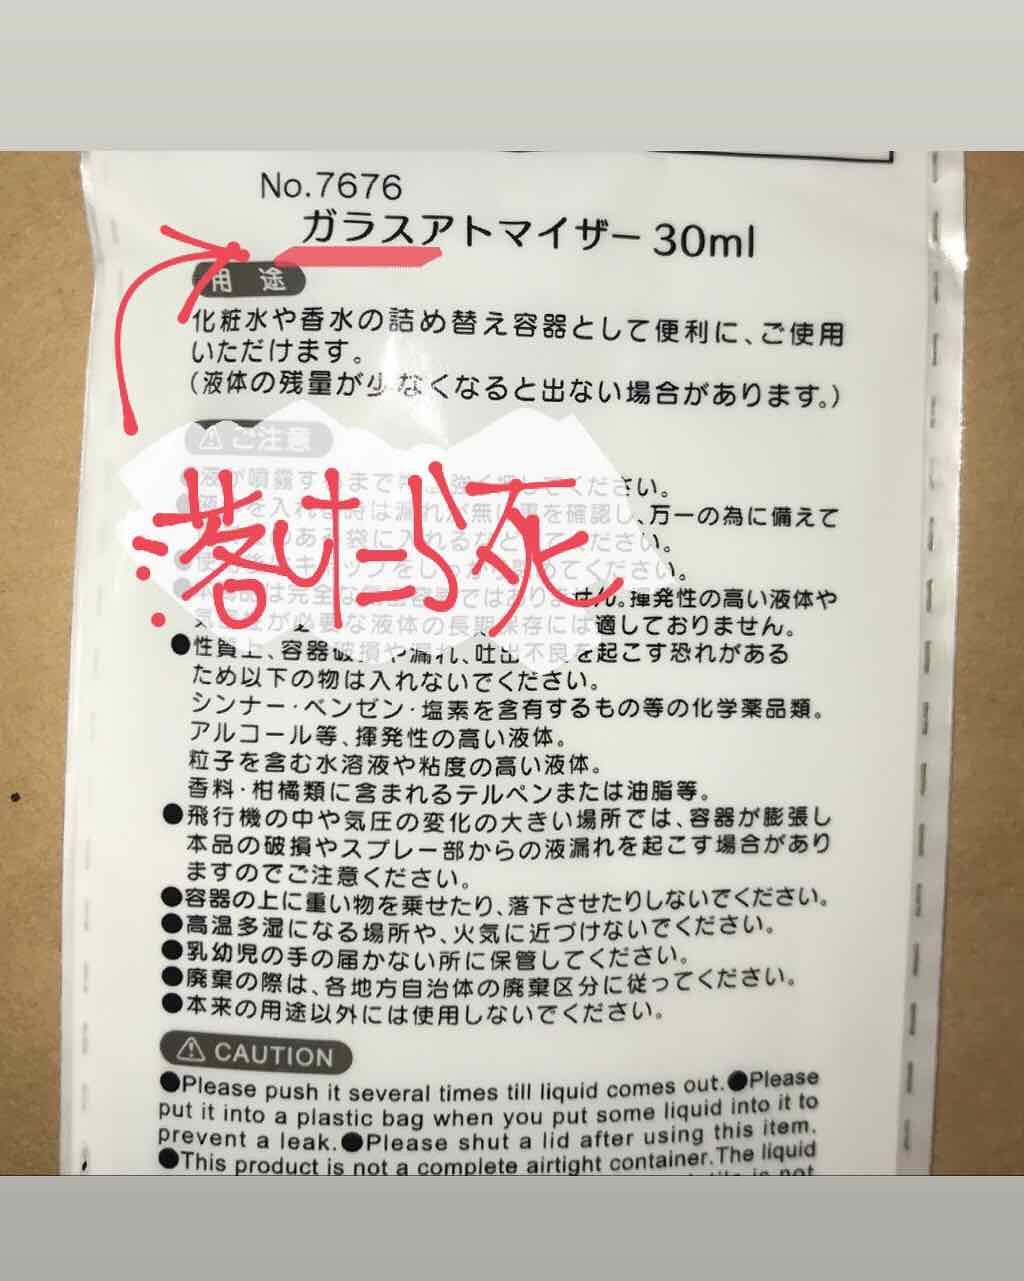 No.7676
ガラスアトマイザー 30ml
用途
化粧水や香水の詰め替え容器として便利に、ご使用
いただけます。
(液体の残量が少なくなると出ない場合があります。)
ご注意
●液が噴霧するまで
ください。
を入れる時は漏れが無い事を確認し、万一の為に備えて
のある袋に入れるなどしてください。
キャップをしっかり閉めてください。
は完全な密封容器ではありません。揮発性の高い液体や
が必要な液体の長期保存には適しておりません。
落としたら死
●性質上、容器破損や漏れ、吐出不良を起こす恐れがある
ため以下の物は入れないでください。
シンナー・ベンゼン・塩素を含有するもの等の化学薬品類。
アルコール等、揮発性の高い液体。
粒子を含む水溶液や粘度の高い液体。
香料・柑橘類に含まれるテルペンまたは油脂等。
●飛行機の中や気圧の変化の大きい場所では、容器が膨張し
本品の破損やスプレー部からの液漏れを起こす場合があり
ますのでご注意ください。
●容器の上に重い物を乗せたり、落下させたりしないでください。
●高温多湿になる場所や、火気に近づけないでください。
●乳幼児の手の届かない所に保管してください。
●廃棄の際は、各地方自治体の廃棄区分に従ってください。
●本来の用途以外には使用しないでください。
CAUTION
●Please push it several times till liquid comes out.●Please
put it into a plastic bag when you put some liquid into it to
prevent a leak.●Please shut a lid after using this item.
●This product is not a complete airtight container.The liquid
is not